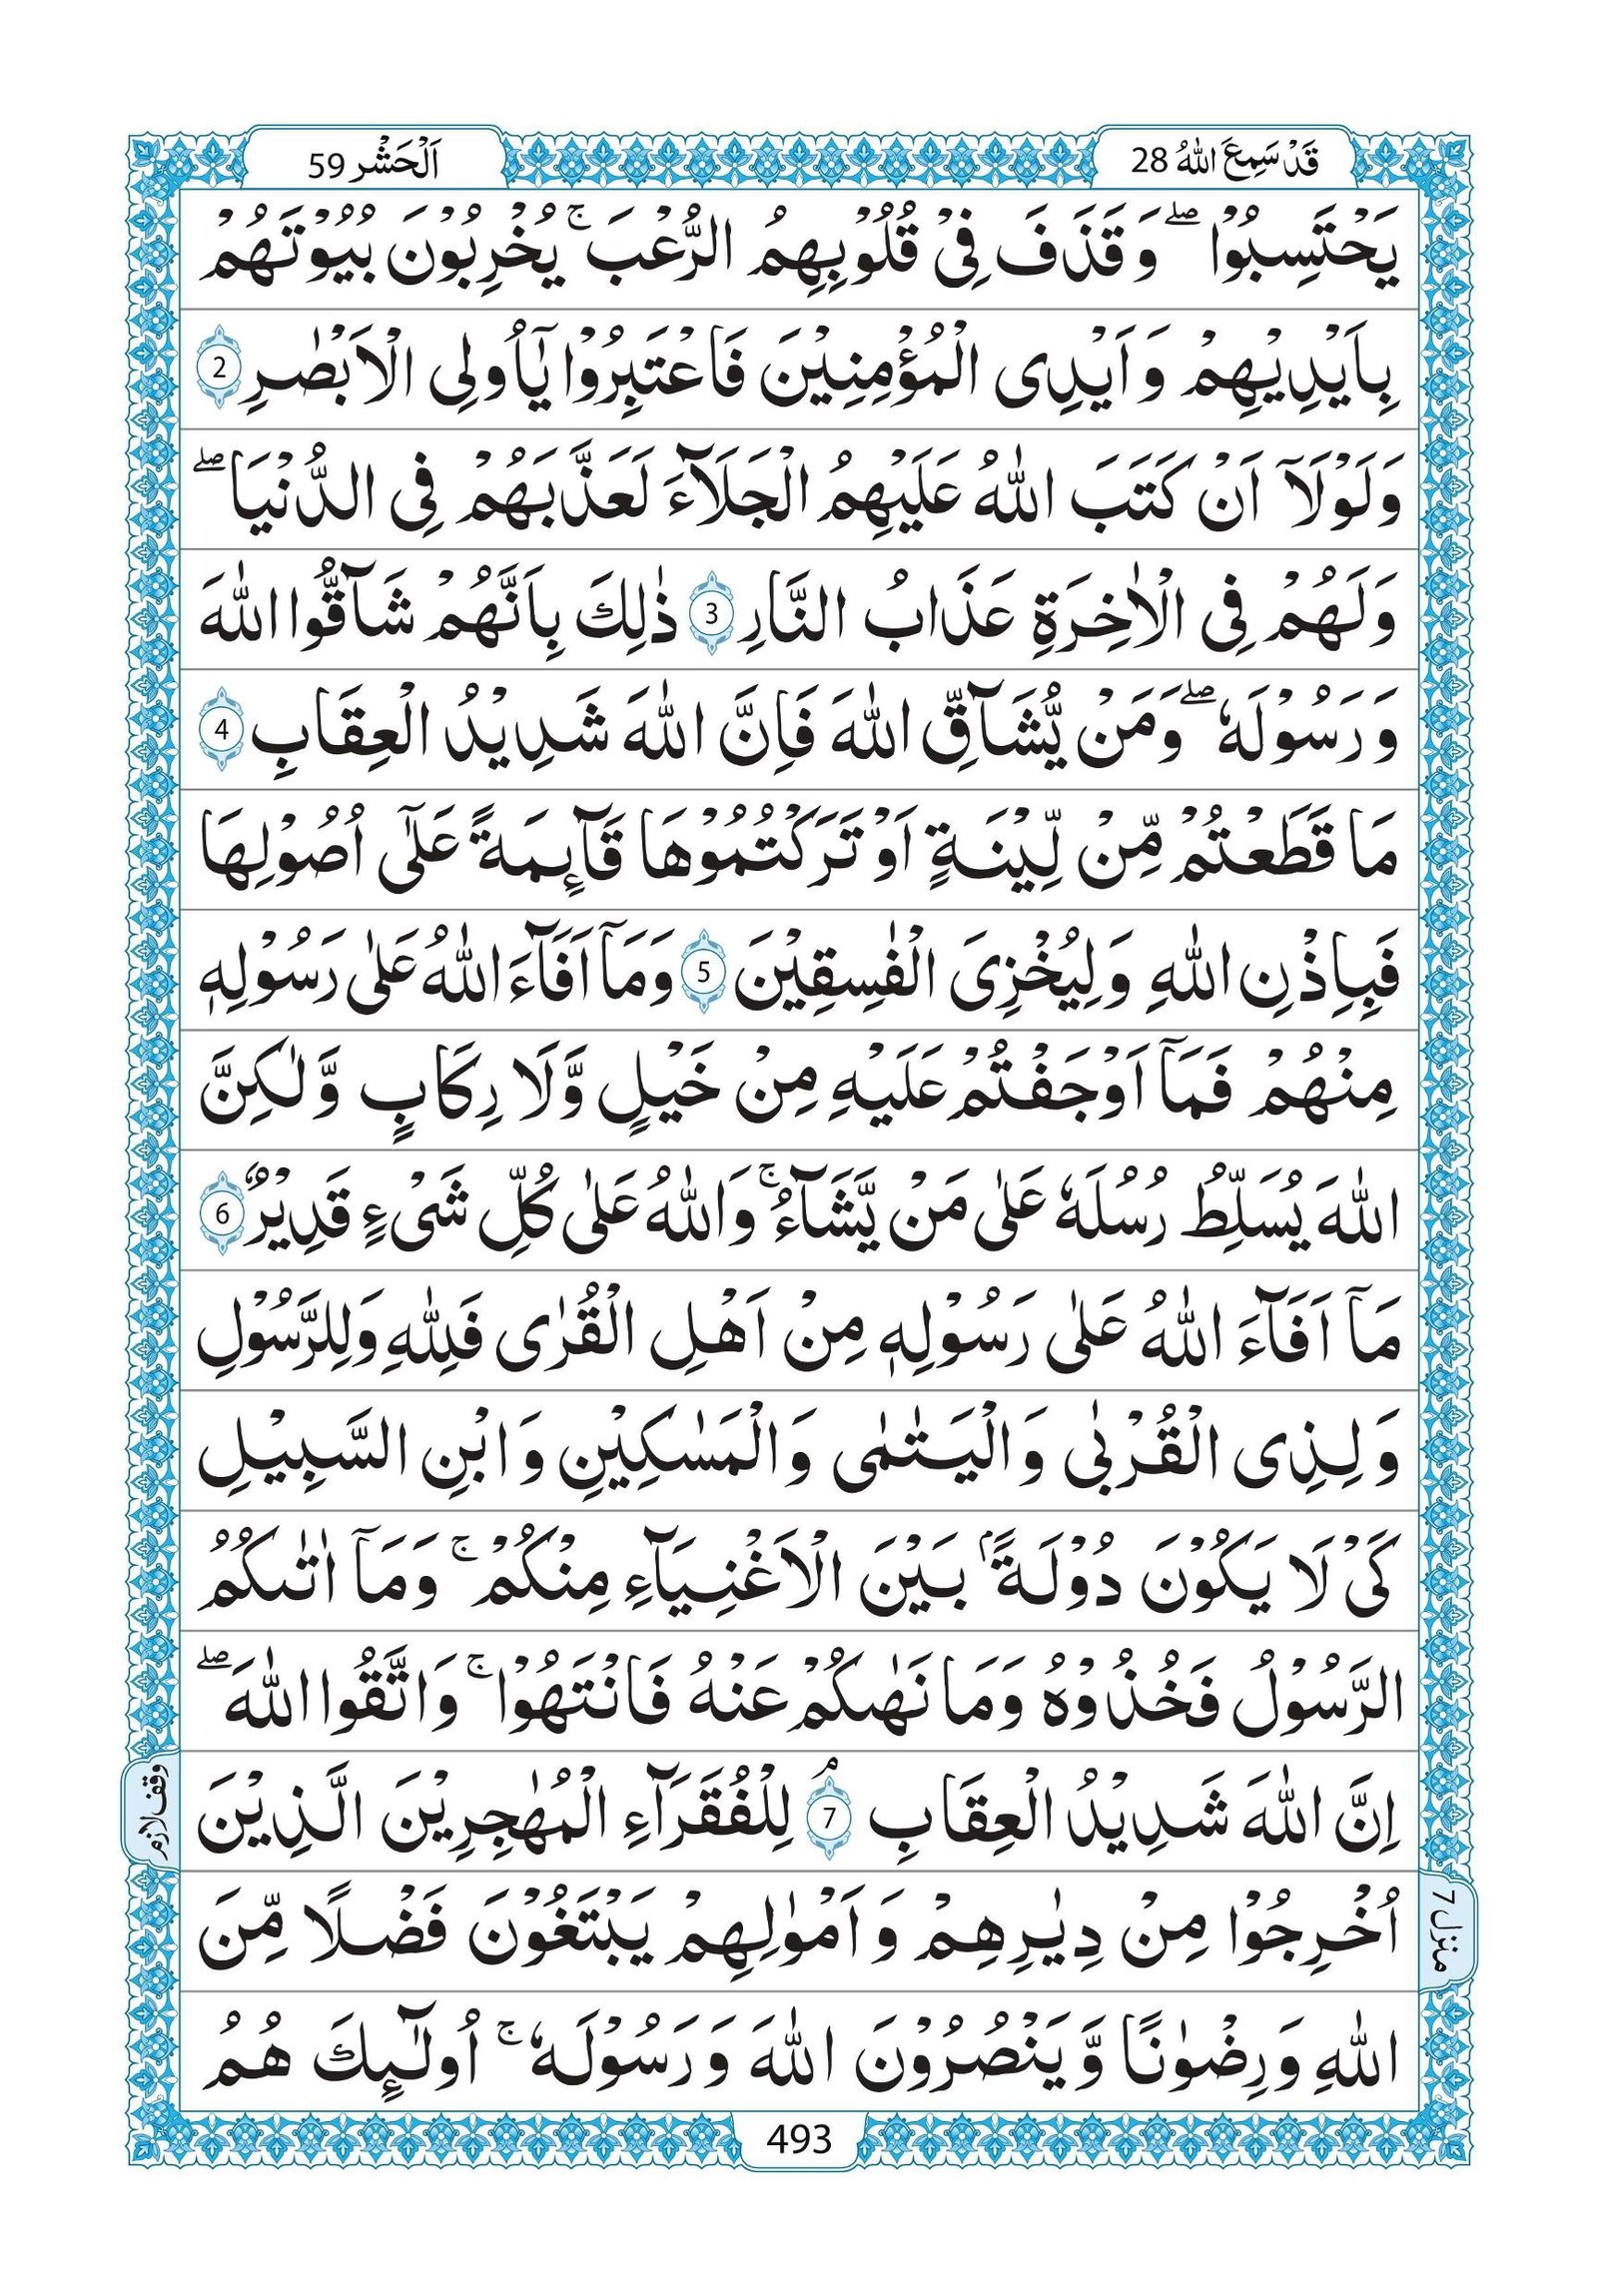 قَدْ سَمِعَ اللّٰهُ 28
اَلْحَشْر 59
يَحْتَسِبُوْا ۖ وَقَذَفَ فِيْ قُلُوْبِهِمُ الرُّعْبَ ۚ يُخْرِبُوْنَ بُيُوْتَهُمْ
بِاَيْدِيْهِمْ وَاَيْدِى الْمُؤْمِنِيْنَ فَاعْتَبِرُوْا يٰٓاُولِى الْاَبْصٰرِ 2
وَلَوْلَآ اَنْ كَتَبَ اللّٰهُ عَلَيْهِمُ الْجَلَآءَ لَعَذَّبَهُمْ فِى الدُّنْيَا ۖ
وَلَهُمْ فِى الْاٰخِرَةِ عَذَابُ النَّارِ 3 ذٰلِكَ بِاَنَّهُمْ شَآقُّوا اللّٰهَ
وَرَسُوْلَهٗ ۖ وَمَنْ يُّشَآقِّ اللّٰهَ فَاِنَّ اللّٰهَ شَدِيْدُ الْعِقَابِ 4
مَا قَطَعْتُمْ مِّنْ لِّيْنَةٍ اَوْ تَرَكْتُمُوْهَا قَآىِٕمَةً عَلٰٓى اُصُوْلِهَا
فَبِاِذْنِ اللّٰهِ وَلِيُخْزِىَ الْفٰسِقِيْنَ 5 وَمَآ اَفَآءَ اللّٰهُ عَلٰى رَسُوْلِهٖ
مِنْهُمْ فَمَآ اَوْجَفْتُمْ عَلَيْهِ مِنْ خَيْلٍ وَّلَا رِكَابٍ وَّلٰكِنَّ
اللّٰهَ يُسَلِّطُ رُسُلَهٗ عَلٰى مَنْ يَّشَآءُ ۚ وَاللّٰهُ عَلٰى كُلِّ شَىْءٍ قَدِيْرٌ 6
مَآ اَفَآءَ اللّٰهُ عَلٰى رَسُوْلِهٖ مِنْ اَهْلِ الْقُرٰى فَلِلّٰهِ وَلِلرَّسُوْلِ
وَلِذِى الْقُرْبٰى وَالْيَتٰمٰى وَالْمَسٰكِيْنِ وَابْنِ السَّبِيْلِ
كَىْ لَا يَكُوْنَ دُوْلَةًۢ بَيْنَ الْاَغْنِيَآءِ مِنْكُمْ ۚ وَمَآ اٰتٰىكُمُ
الرَّسُوْلُ فَخُذُوْهُ وَمَا نَهٰىكُمْ عَنْهُ فَانْتَهُوْا ۚ وَاتَّقُوا اللّٰهَ ۖ
اِنَّ اللّٰهَ شَدِيْدُ الْعِقَابِ 7ۘ لِلْفُقَرَآءِ الْمُهٰجِرِيْنَ الَّذِيْنَ
وقف لازم
اُخْرِجُوْا مِنْ دِيٰرِهِمْ وَاَمْوٰلِهِمْ يَبْتَغُوْنَ فَضْلًا مِّنَ
منزل ٧
اللّٰهِ وَرِضْوٰنًا وَّيَنْصُرُوْنَ اللّٰهَ وَرَسُوْلَهٗ ۚ اُولٰٓىِٕكَ هُمُ
493